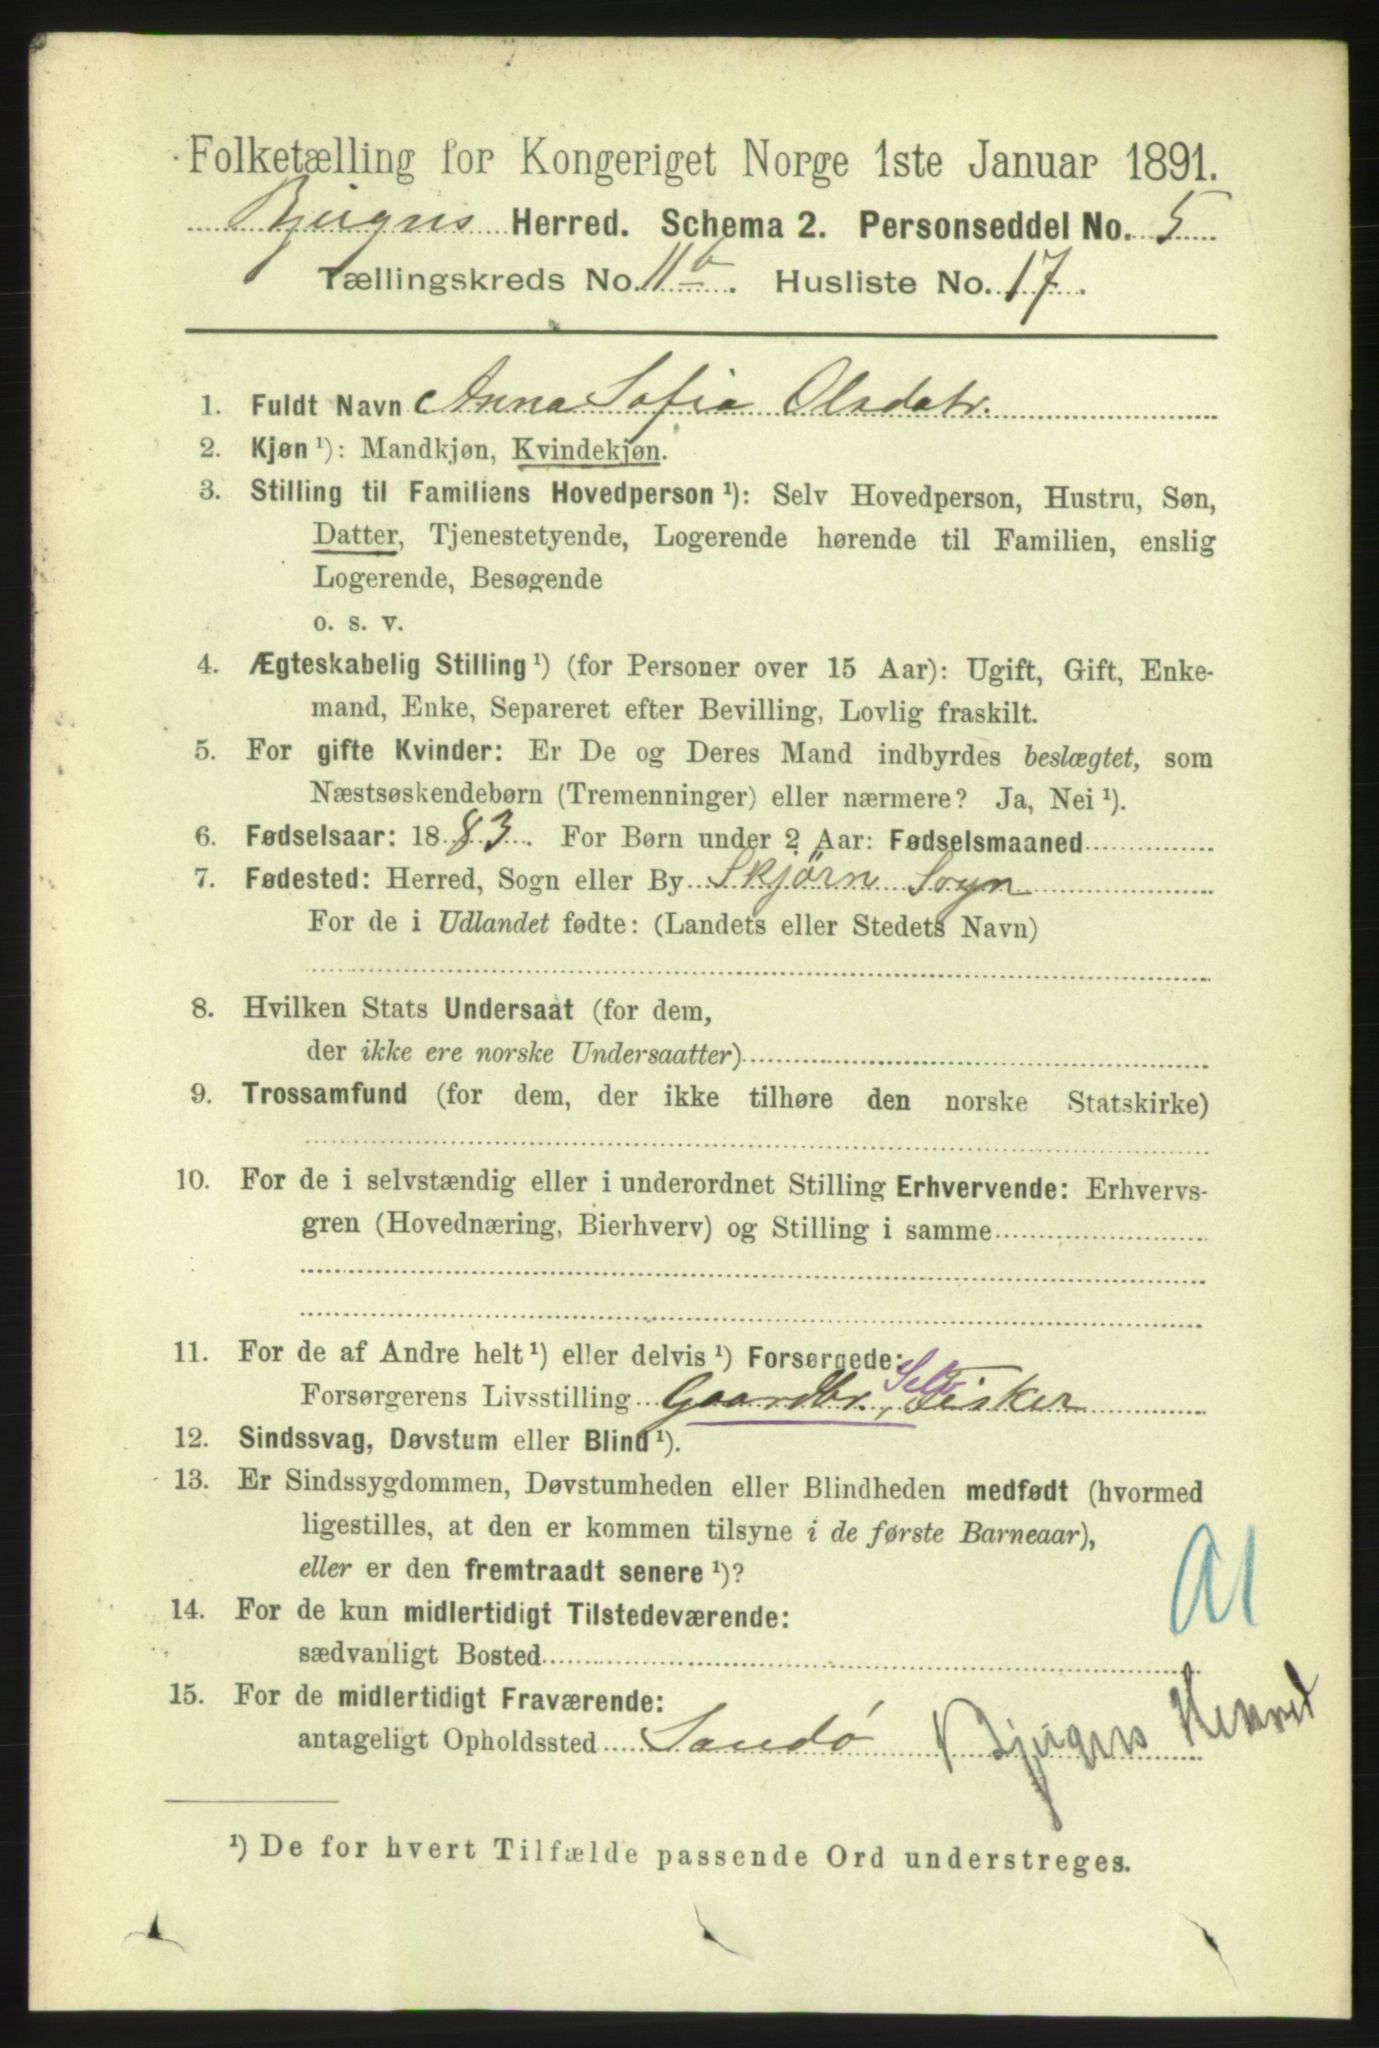 Folketælling for Kongeriget Norge 1ste Januar 1891.
Bjugns Herred. Schema 2. Personseddel No. 5
Tællingskreds No. 11b. Husliste No. 17.
1. Fuldt Navn Anna Sofia Olsdatr.
2. Kjøn ¹): Mandkjøn, Kvindekjøn.
3. Stilling til Familiens Hovedperson ¹): Selv Hovedperson, Hustru, Søn,
Datter, Tjenestetyende, Logerende hørende til Familien, enslig
Logerende, Besøgende
o. s. v.
4. Ægteskabelig Stilling ¹) (for Personer over 15 Aar): Ugift, Gift, Enke-
mand, Enke, Separeret efter Bevilling, Lovlig fraskilt.
5. For gifte Kvinder: Er De og Deres Mand indbyrdes beslægtet, som
Næstsøskendebørn (Tremenninger) eller nærmere? Ja, Nei ¹).
6. Fødselsaar: 1883. For Børn under 2 Aar: Fødselsmaaned
7. Fødested: Herred, Sogn eller By Skjörn Sogn
For de i Udlandet fødte: (Landets eller Stedets Navn)
8. Hvilken Stats Undersaat (for dem,
der ikke ere norske Undersaatter)
9. Trossamfund (for dem, der ikke tilhøre den norske Statskirke)
10. For de i selvstændig eller i underordnet Stilling Erhvervende: Erhvervs-
gren (Hovednæring, Bierhverv) og Stilling i samme
11. For de af Andre helt ¹) eller delvis ¹) Forsørgede:
Forsørgerens Livsstilling Gaardbr., Selv Fisker
12. Sindssvag, Døvstum eller Blind ¹).
13. Er Sindssygdommen, Døvstumheden eller Blindheden medfødt (hvormed
ligestilles, at den er kommen tilsyne i de første Barneaar),
eller er den fremtraadt senere ¹)?
14. For de kun midlertidigt Tilstedeværende:
sædvanligt Bosted
15. For de midlertidigt Fraværende:
antageligt Opholdssted Sandö Bjugns Herred
¹) De for hvert Tilfælde passende Ord understreges.